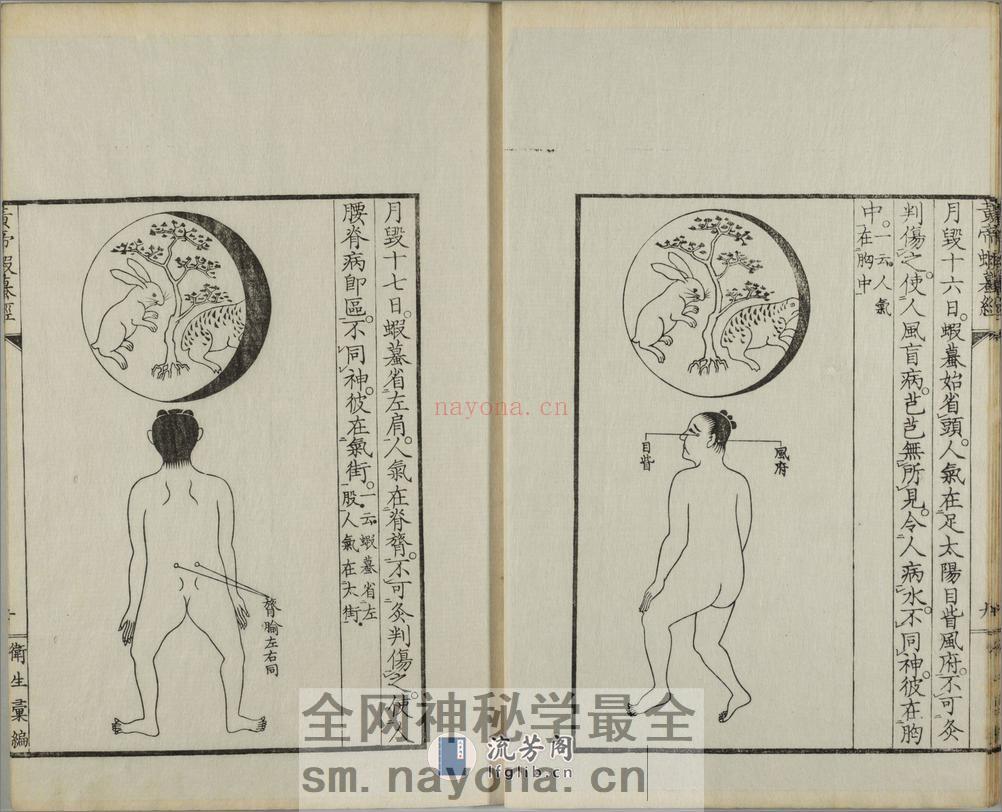 黃帝蝦蟇經
月毀十六日蝦蟇始省頭人氣在足太陽目眥風府不可灸
判傷之使人風盲病芒芒無所見令人病水不同神彼在胸
中一云人氣
在胸中
目眥
風府
九
月毀十七日蝦蟇省左肩人氣在脊膂不可灸判傷之使人
腰脊病卽區不同神彼在氣街一云蝦蟇省左
股人氣在大街
膂腧左右同
黃帝蝦蟇經
十
衛生彙編
nayona.cn
全网神秘学最全
流芳阁
lfglib.cn
sm.nayona.cn